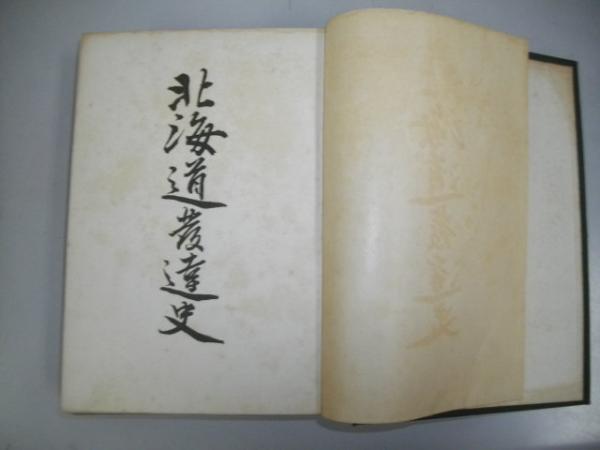 北海道發達史